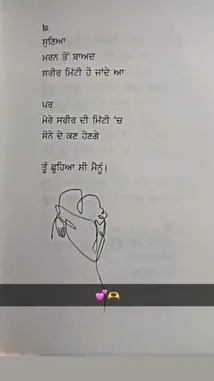 ਸੁਣਿਆ
ਮਰਨ ਤੋਂ ਬਾਅਦ
ਸਰੀਰ ਮਿੱਟੀ ਹੋ ਜਾਂਦੇ ਆ
ਪਰ
ਮੇਰੇ ਸਰੀਰ ਦੀ ਮਿੱਟੀ 'ਚ
ਸੋਨੇ ਦੇ ਕਣ ਹੋਣਗੇ
ਤੂੰ ਛੂਹਿਆ ਸੀ ਮੈਨੂੰ।
💕🫶